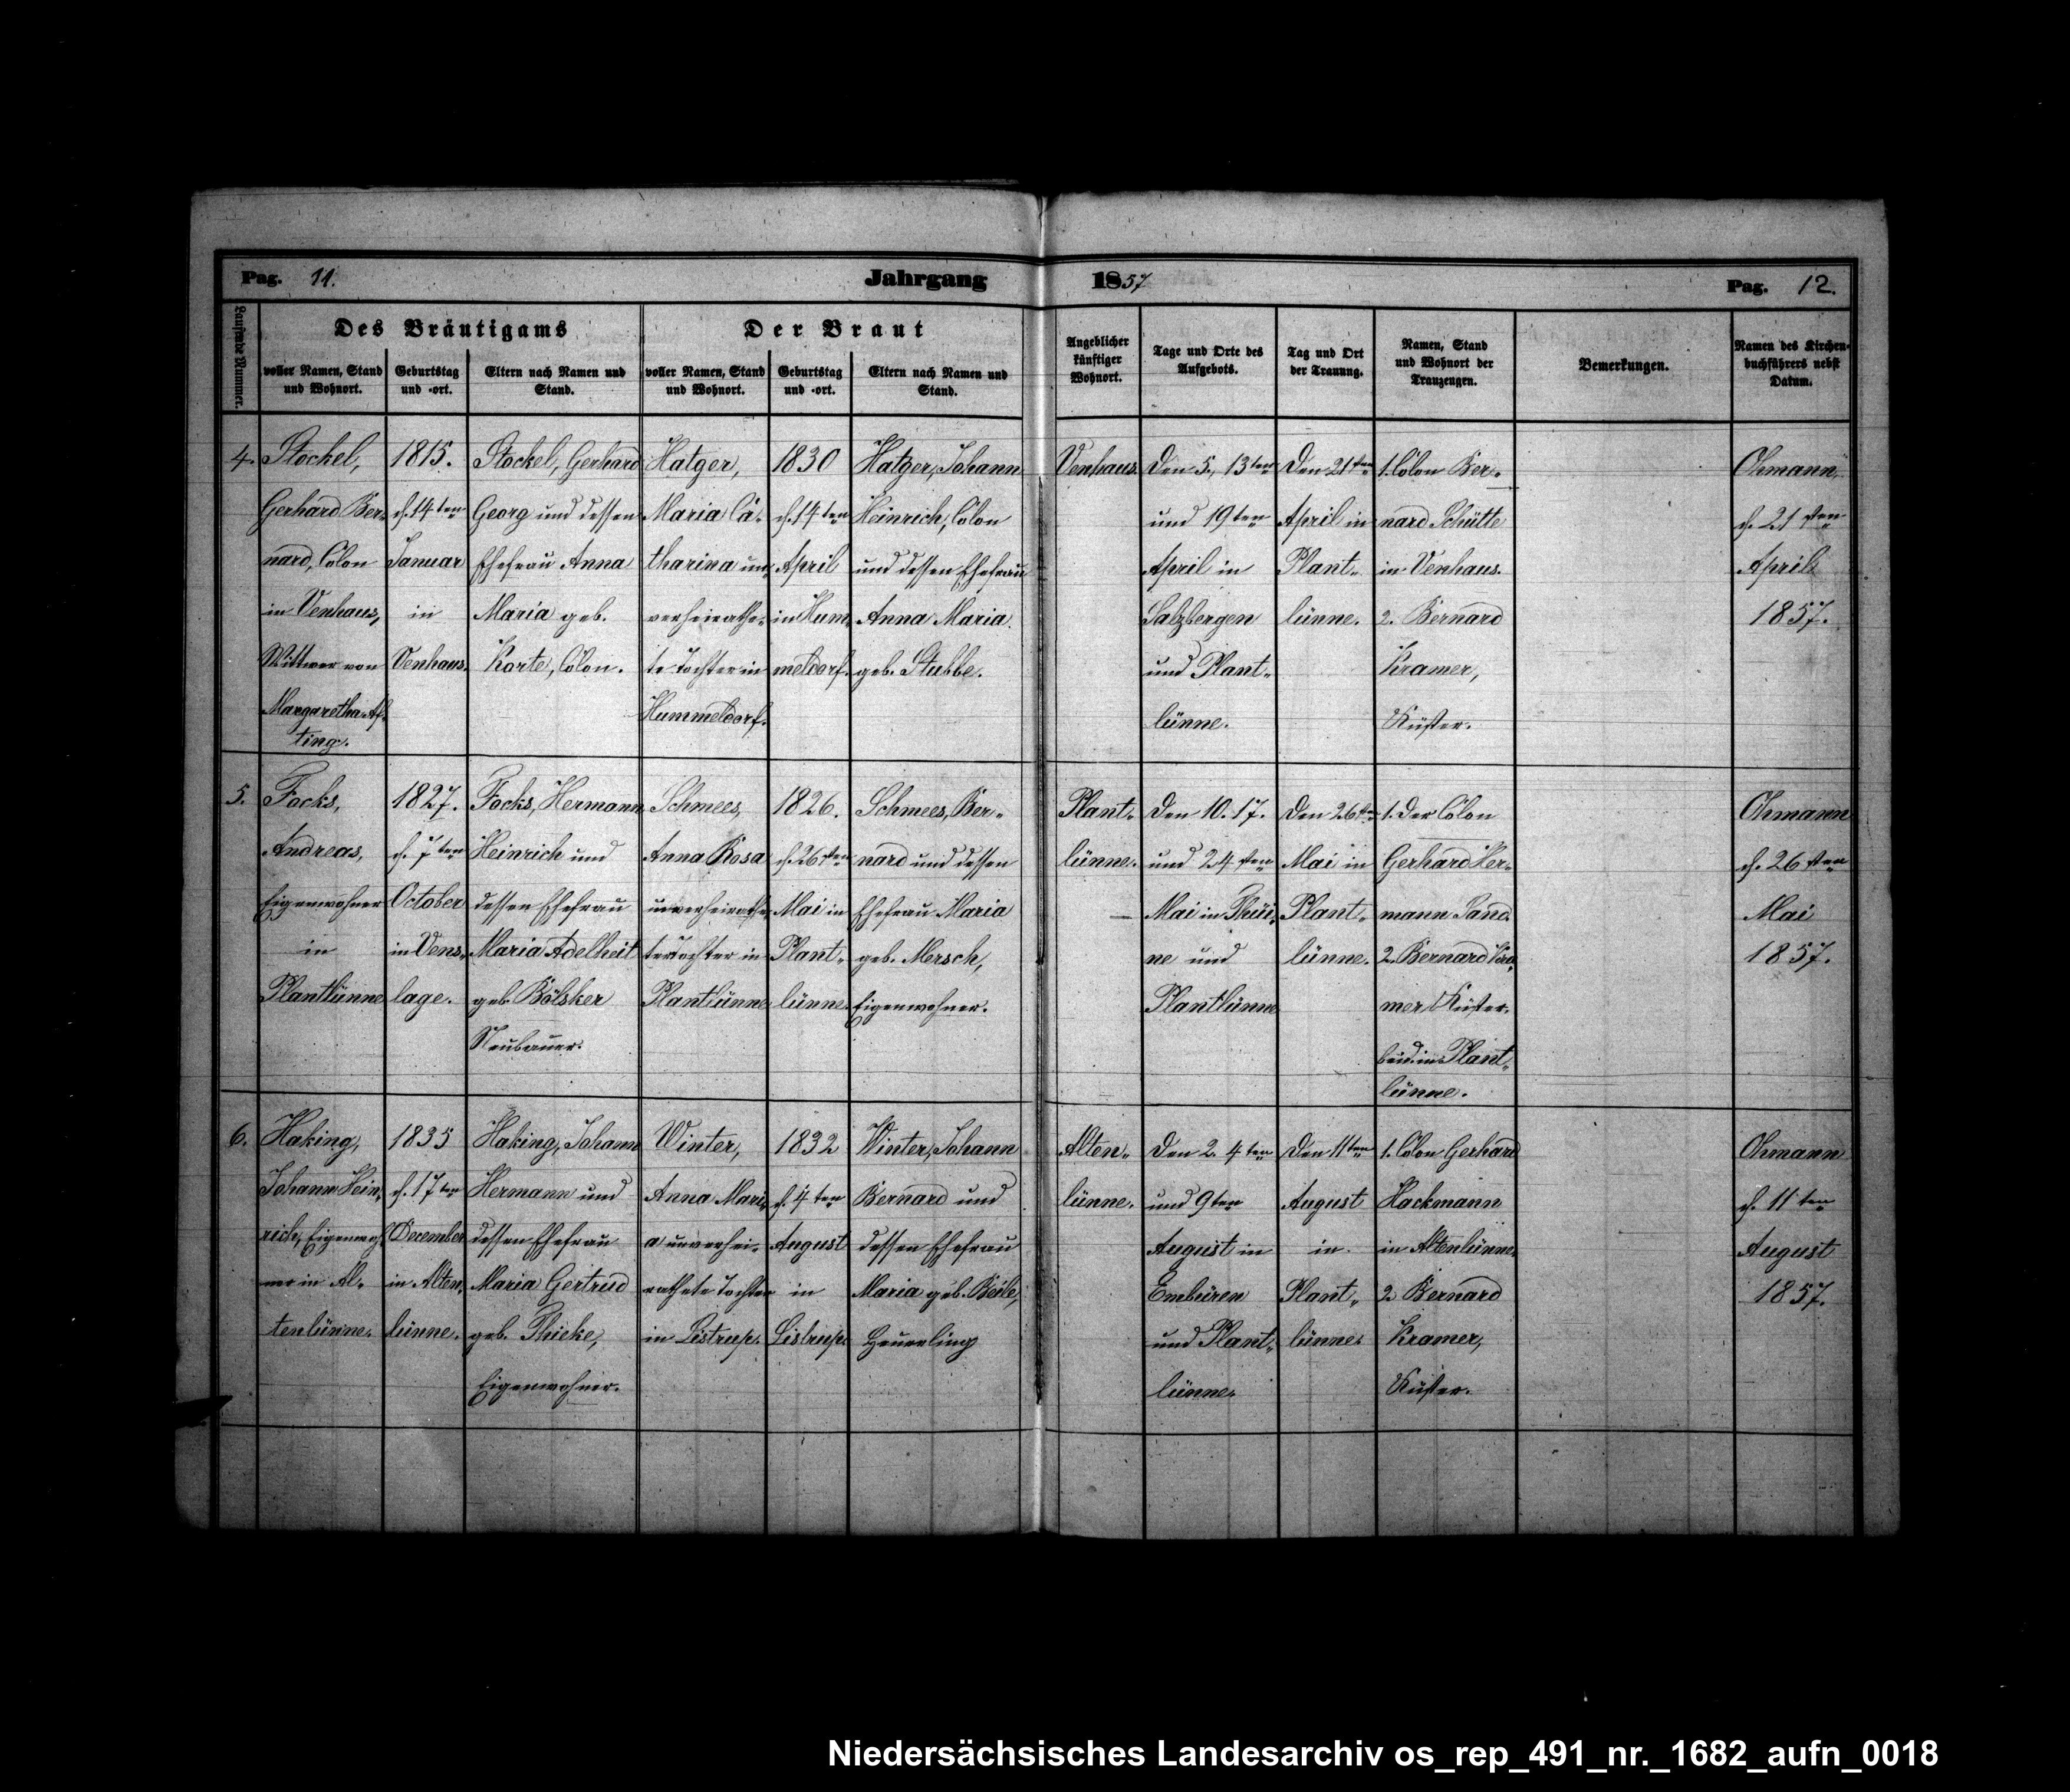 Pag. 11.
Jahrgang 1857
Pag. 12.
Laufende Nummer.
Des Bräutigams
voller Namen, Stand
und Wohnort.
Geburtstag
und -ort.
Eltern nach Namen und
Stand.
Der Braut
voller Namen, Stand
und Wohnort.
Geburtstag
und -ort.
Eltern nach Namen und
Stand.
Angeblicher
künftiger
Wohnort.
Tage und Orte des
Aufgebots.
Tag und Ort
der Trauung.
Namen, Stand
und Wohnort der
Trauzeugen.
Bemerkungen.
Namen des Kirchen-
buchführers nebst
Datum.
4.
Stockel,
Gerhard Ber-
nard, Colon
in Venhaus,
Wittwer von
Margaretha
ting.
1815.
d. 14ten
Januar
in
Venhaus.
Stockel, Gerhard
Georg und dessen
Ehefrau Anna
Maria geb.
Korte, Colon.
Hatger,
Maria Ca-
tharina un-
verheirathe-
te Tochter in
Hummeldorf.
1830
d. 14ten
April
in Hum-
meldorf.
Hatger, Johann
Heinrich, Colon
und dessen Ehefrau
Anna Maria
geb. Stubbe.
Venhaus.
Den 5., 13ten
und 19ten
April in
Salzbergen
und Plant-
lünne.
Den 21ten
April in
Plant-
lünne.
1. Colon Ber-
nard Schütte
in Venhaus.
2. Bernard
Kramer,
Küster.
Ohmann,
d. 21sten
April
1857.
5.
Focks,
Andreas,
Eigenwohner
in
Plantlünne
1827.
d. 7ten
October
in Vens-
lage.
Focks, Hermann
Heinrich und
dessen Ehefrau
Maria Adelheit
geb. Bölsker
Neubauer.
Schmees,
Anna Rosa
unverheirathe-
te Tochter in
Plantlünne
1826.
d. 26sten
Mai in
Plant-
lünne.
Schmees, Ber-
nard und dessen
Ehefrau Maria
geb. Mersch,
Eigenwohner.
Plant-
lünne.
Den 10. 17.
und 24sten
Mai in Thüi-
ne und
Plantlünne
Den 26ten
Mai in
Plant-
lünne.
1. Der Colon
Gerhard Her-
mann Sand
2. Bernard Kra-
mer Küster.
beid. in Plant-
lünne.
Ohmann
d. 26sten
Mai
1857.
6.
Haking,
Johann Hein-
rich, Eigenwoh-
ner in Al-
tenlünne.
1835
d. 17ten
December
in Alten-
lünne.
Haking, Johann
Hermann und
dessen Ehefrau
Maria Gertrud
geb. Thieke,
Eigenwohner.
Winter,
Anna Mari-
a unverhei-
rathete Tochter
in Listrup.
1832
d. 4ten
August
in
Listrup.
Winter, Johann
Bernard und
dessen Ehefrau
Maria geb.
Heuerling
Alten-
lünne.
Den 2. 4ten
und 9ten
August in
Embüren
und Plant-
lünne.
Den 11ten
August
in
Plant-
lünne.
1. Colon Gerhard
Hackmann
in Altenlünne.
2. Bernard
Kramer,
Küster.
Ohmann
d. 11ten
August
1857.
Niedersächsisches Landesarchiv os_rep_491_nr._1682_aufn_0018